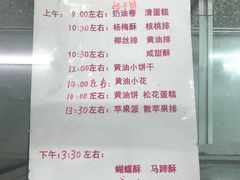 上午: 9:00左右: 奶油卷 清蛋糕
10:30左右: 杨梅酥 核桃排
椰丝排 黄油排
10:30左右: 咸甜酥
12:00左右: 黄油小饼干
14:00左右: 黄油小花
14:00左右: 黄油饼 松花蛋糕
13:30左右: 苹果派 散苹果排
下午: 3:30左右:
蝴蝶酥 马蹄酥